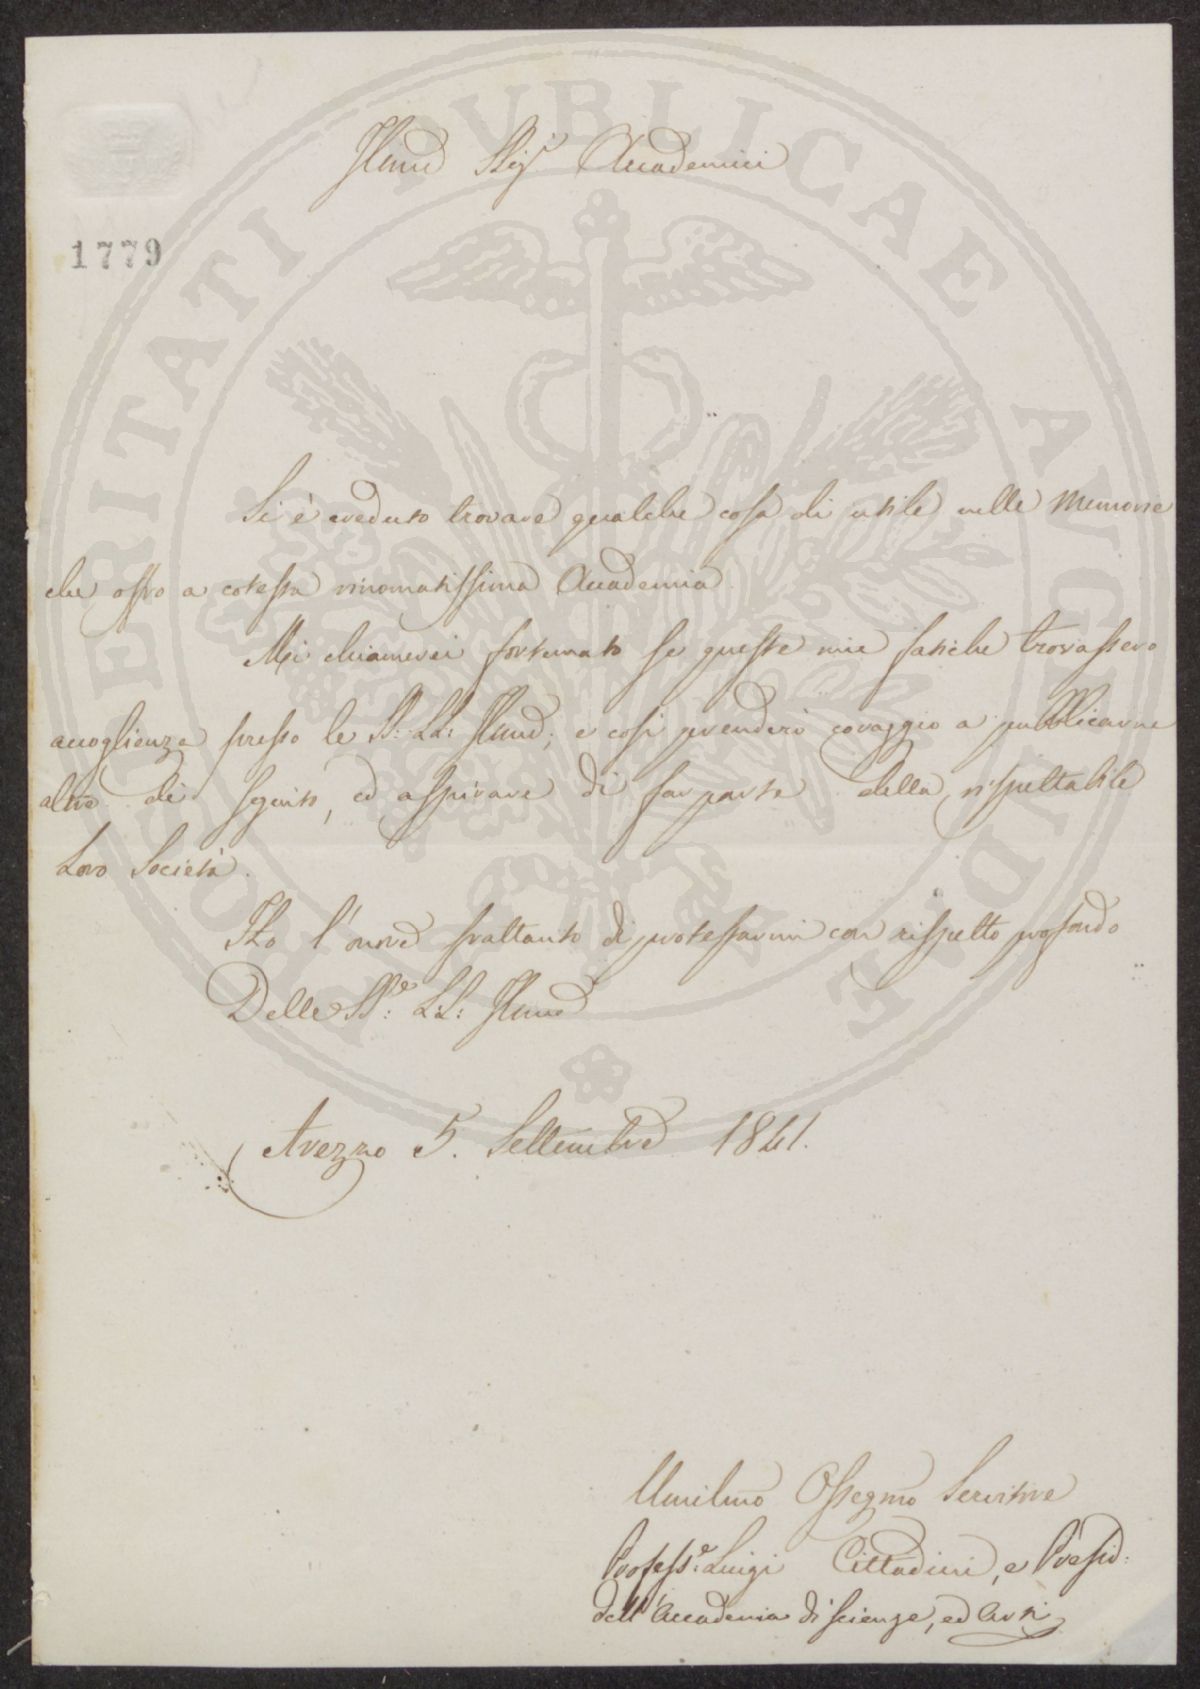 Illmi Sigri Accademici
1779
Si è creduto trovare qualche cosa di utile nelle Memorie
che offro a cotesta rinomatissima Accademia.
Mi chiamerei fortunato se queste mie fatiche trovassero
accoglienza presso le SS: LL: Illme; e così prenderò coraggio a pubblicarne
altre di seguito, ed aspirare di far parte della rispettabile
Loro Società.
Ho l'onore soltanto di protestarmi con rispetto profondo
Delle SS: LL: Illme
Arezzo 5. Settembre 1841.
Umilmo Ossegmo Servitore
Professe: Luigi Cittadini, e Presid:
dell'Accademia di Scienze, ed Arti
PROSPERITATI PVBLICAE AVGENDAE